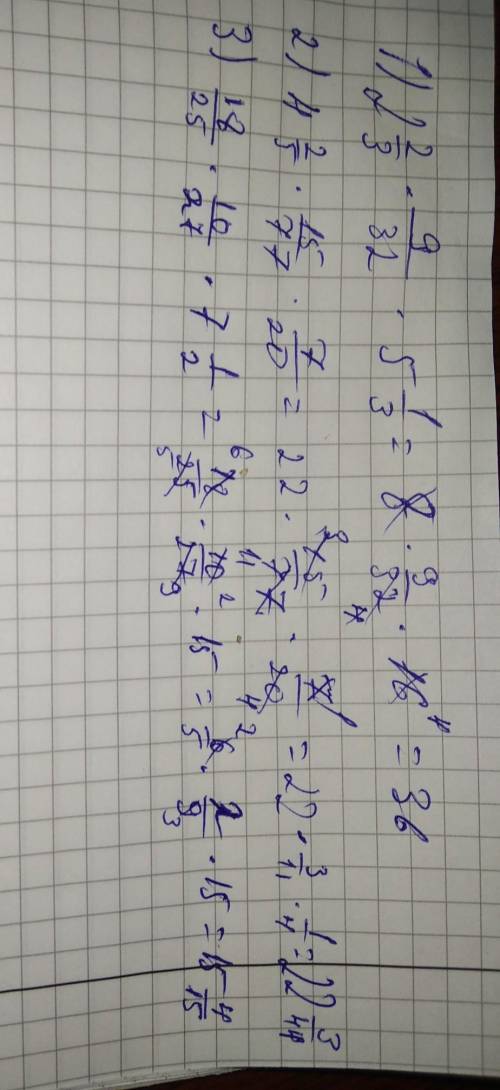 1) 2 2/3 · 9/32 · 5 1/3 = 8 · 9/32 4 · 16 4 = 36
2) 4 2/5 · 15/77 · 7/20 = 22 · 3 15/77 11 · 7 1/20 4 = 22 · 3/11 · 1/4 = 22 3/44
3) 18/25 · 10/27 · 7 1/2 = 6 18/25 5 · 10 2/27 9 · 15 = 6 2/5 · 2/9 3 · 15 = 15 4/15